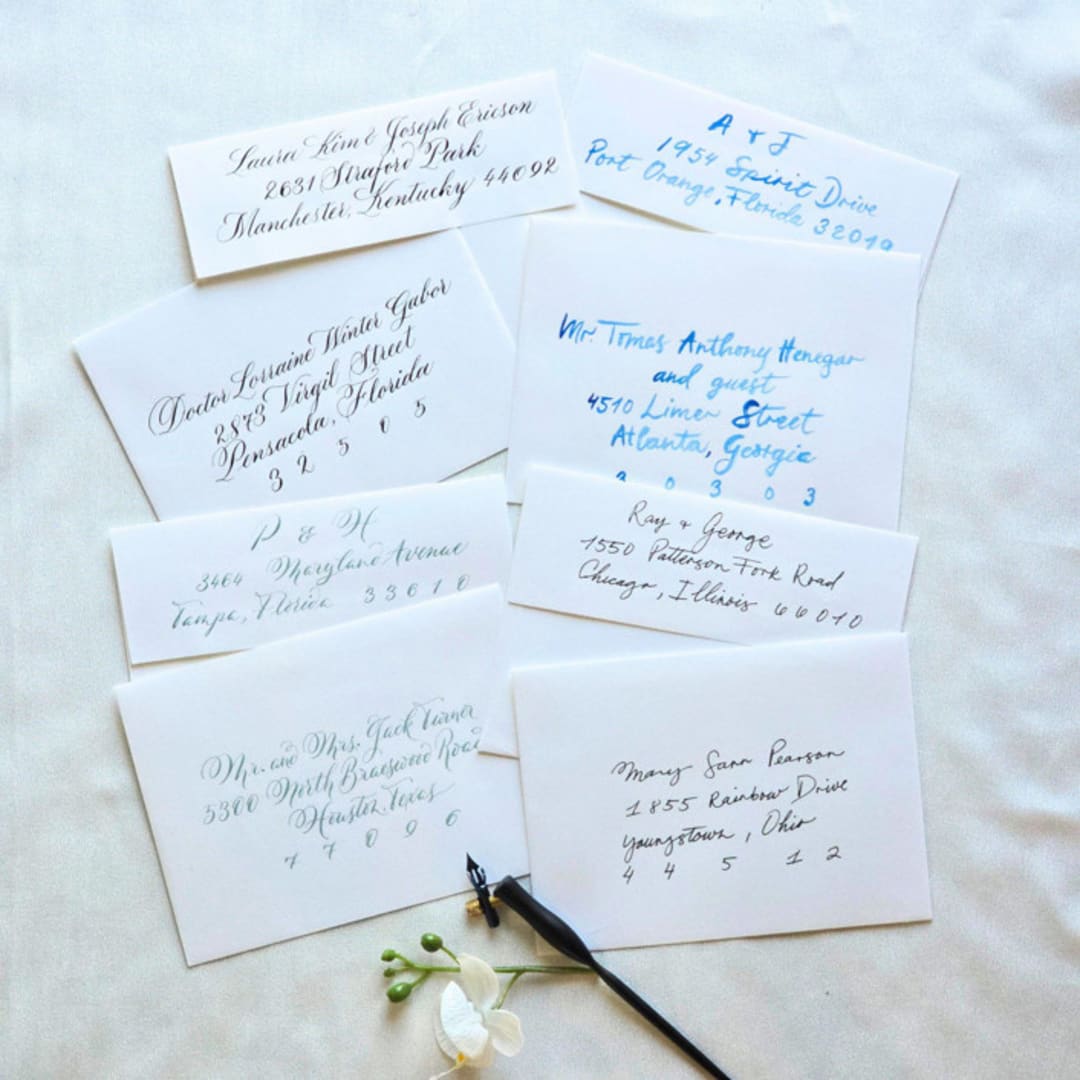 Laura Kim & Joseph Ericson
2631 Straford Park
Manchester, Kentucky 44092
A & J
1954 Spirit Drive
Port Orange, Florida 32019
Doctor Lorraine Winter Gabor
2873 Virgil Street
Pensacola, Florida
3 2 5 0 5
Mr. Tomas Anthony Henegar
and guest
4510 Limer Street
Atlanta, Georgia
3 0 3 0 3
P & H
3464 Maryland Avenue
Tampa, Florida 33610
Ray & George
1550 Patterson Fork Road
Chicago, Illinois 66010
Mr. and Mrs. Jack Turner
5300 North Braeswood Road
Houston, Texas
7 7 0 9 6
Mary Sann Pearson
1855 Rainbow Drive
Youngstown, Ohio
4 4 5 1 2